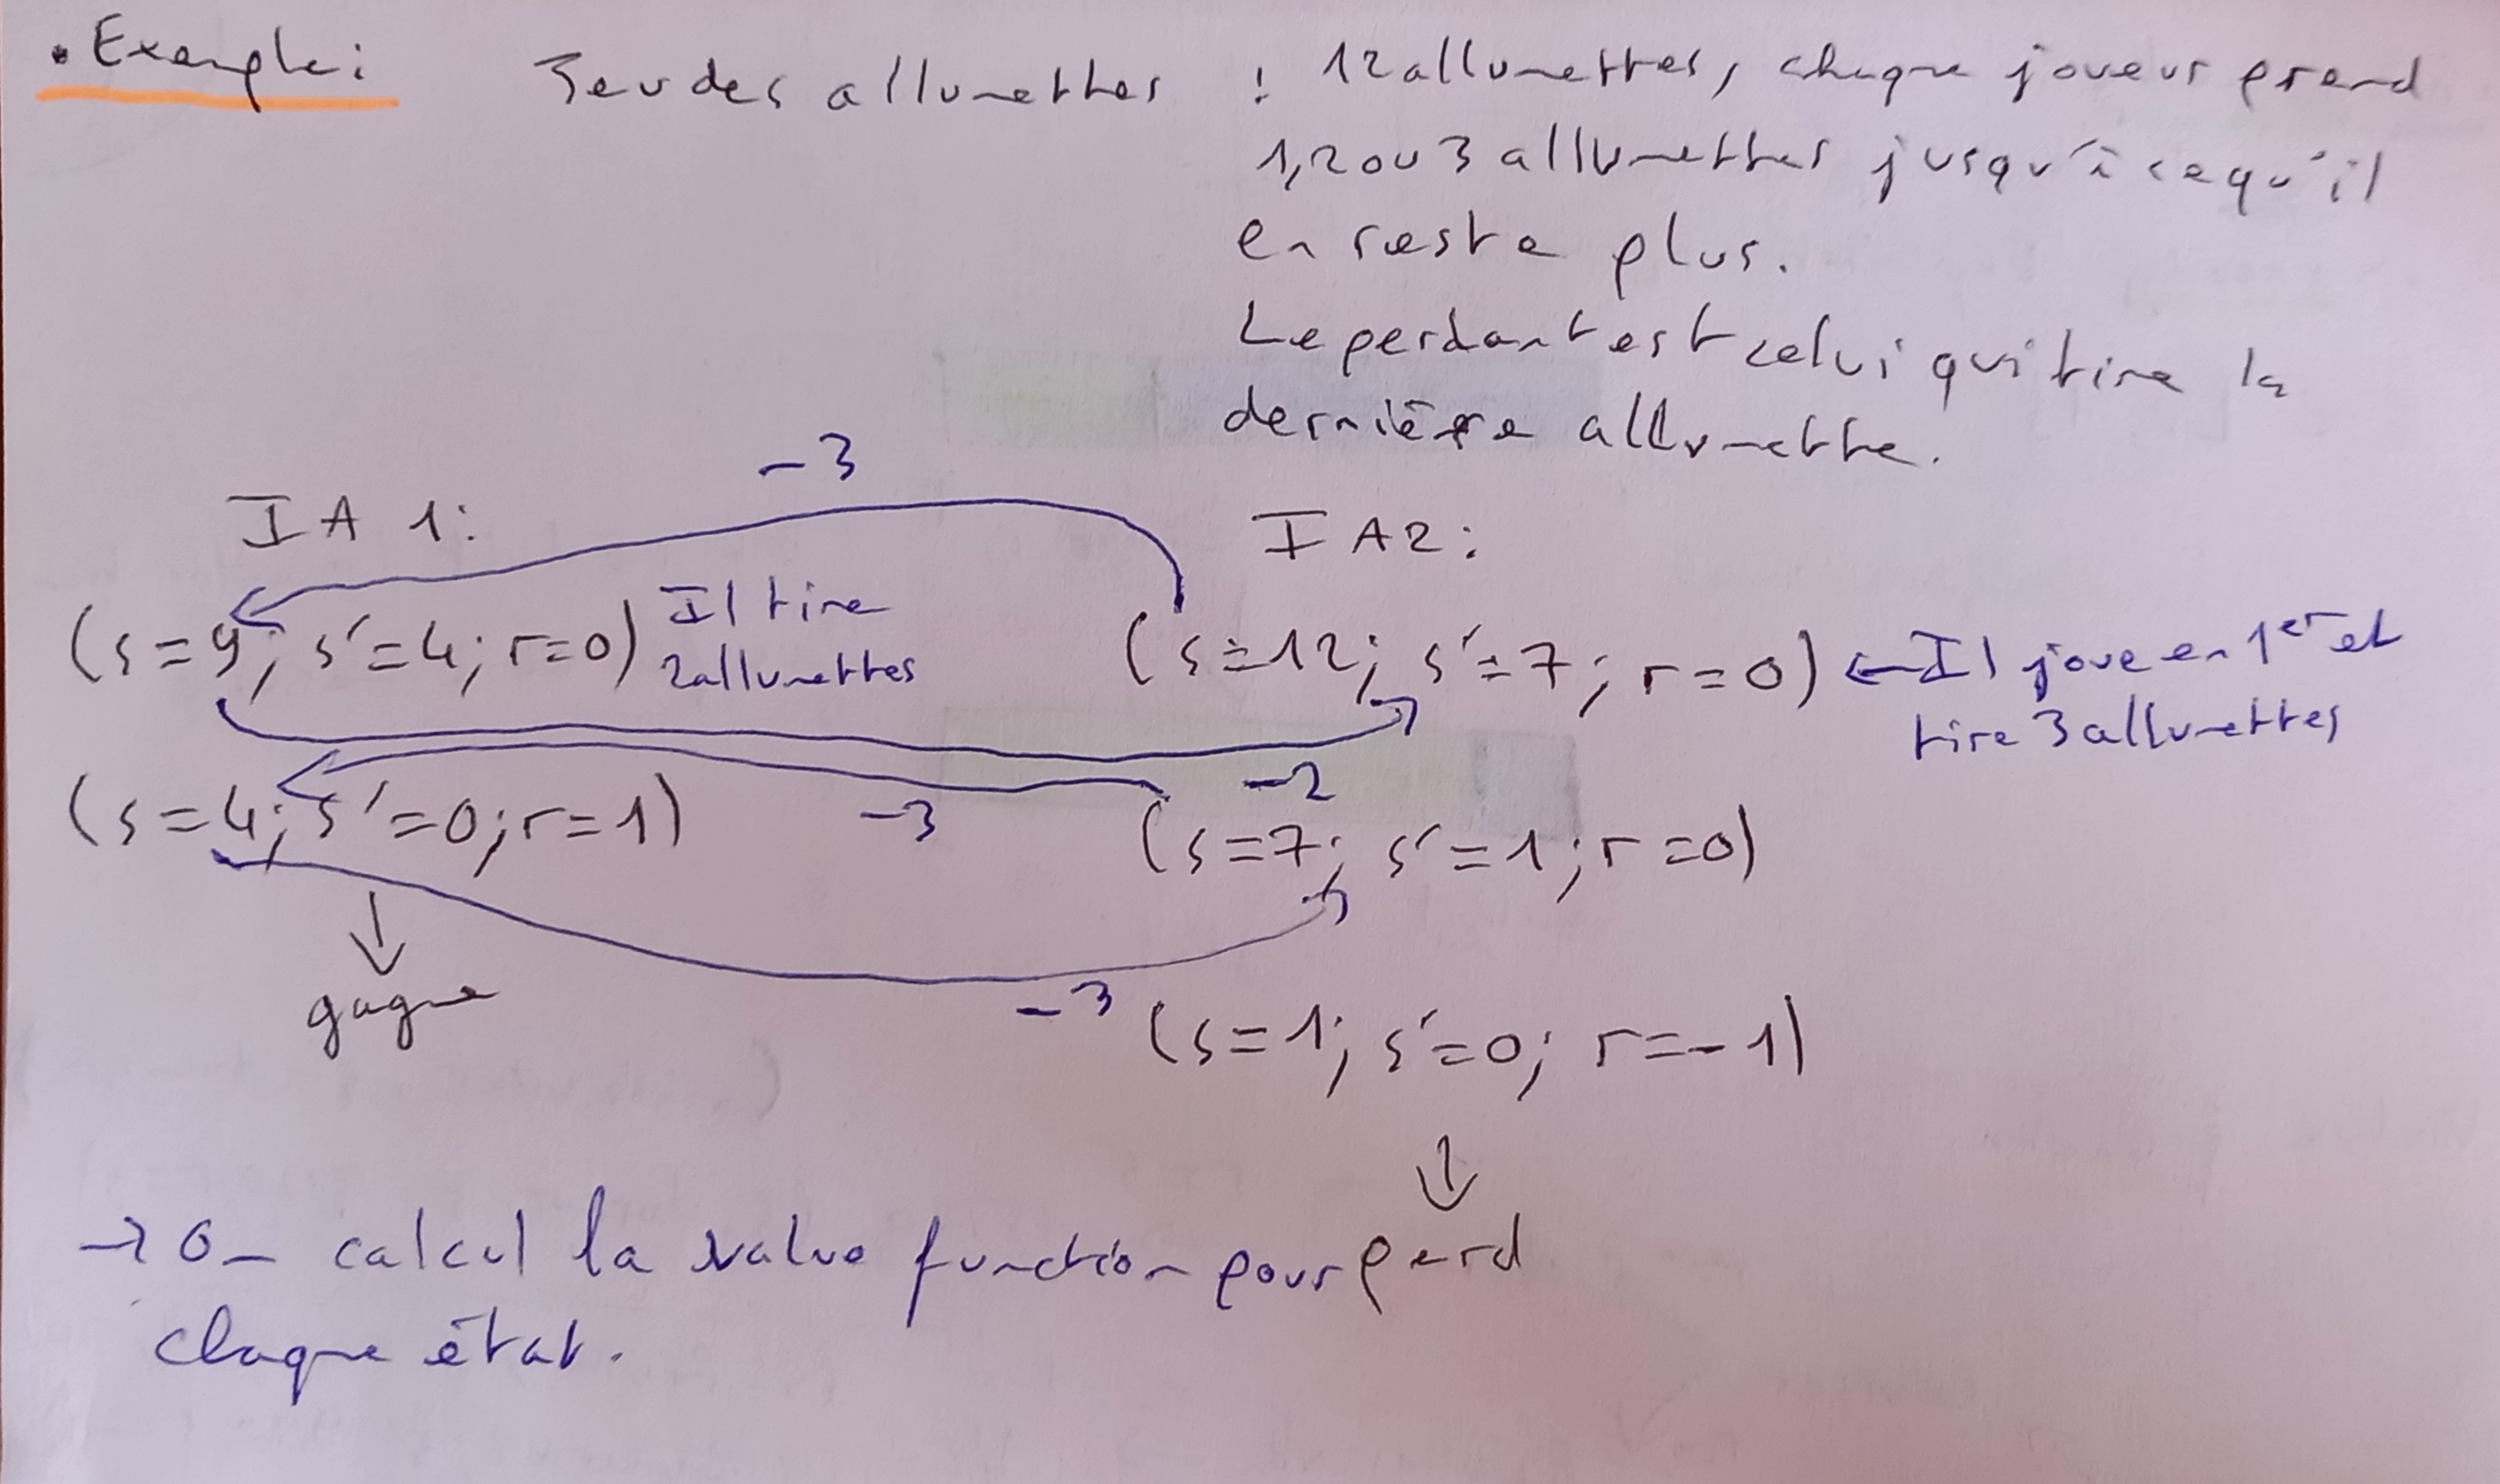 • Exemple :
Jeu des allumettes : 12 allumettes, chaque joueur prend
1,2 ou 3 allumettes jusqu'à ce qu'il
en reste plus.
Le perdant est celui qui tire la
dernière allumette.
-3
IA 1 :
IA2 :
(s=9; s'=4; r=0) Il tire
2 allumettes
(s=12; s'=7; r=0) ← Il joue en 1er et
tire 3 allumettes
-2
(s=4; s'=0; r=1)
-3
(s=7; s'=1; r=0)
↓
gagne
-3
(s=1; s'=0; r=-1)
↓
perd
→ On calcul la value function pour
chaque état.